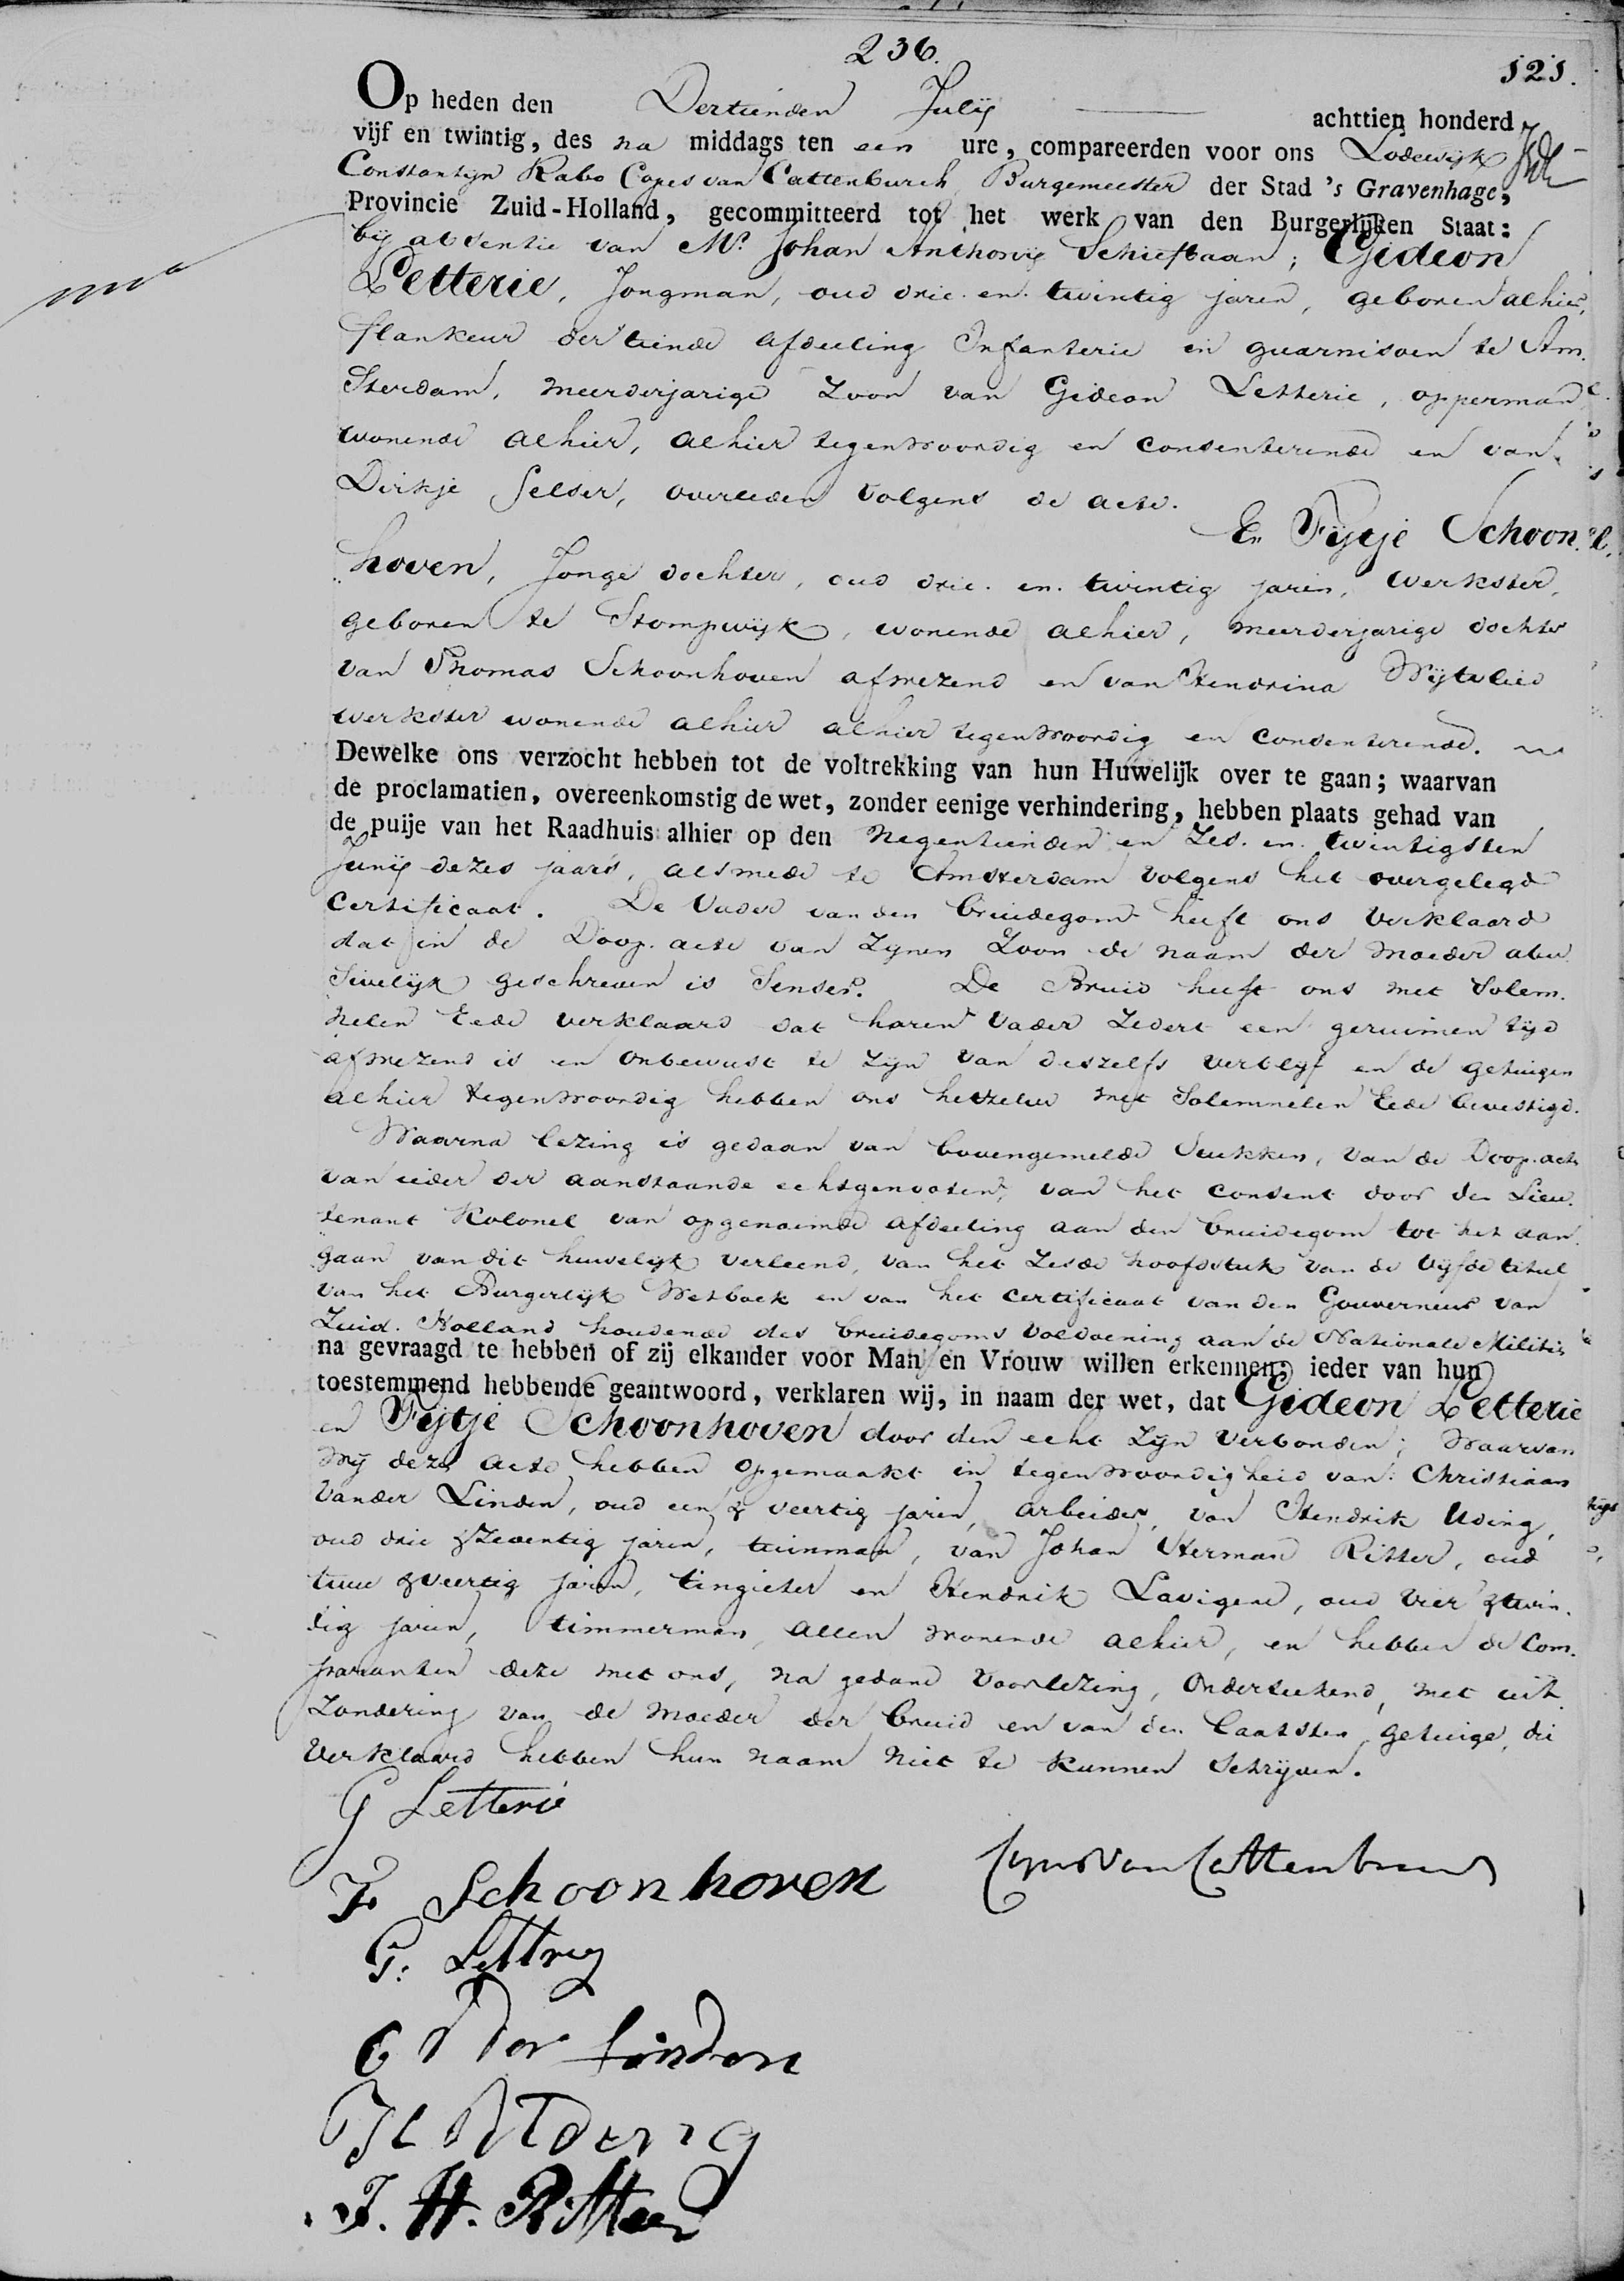 236.
121.
Op heden den Dertienden Julij achttien honderd
vijf en twintig, des na middags ten een ure, compareerden voor ons Lodewijk
Constantijn Rabo Copes van Cattenburch, Burgemeester der Stad 's Gravenhage,
Provincie Zuid-Holland, gecommitteerd tot het werk van den Burgerlijken Staat:
bij absentie van Mr. Johan Anthonij Schiefbaan; Gideon
Letterie, Jongman, oud drie. en. twintig jaren, geboren alhier,
flankeur der tiende afdeeling Infanterie in guarnisoen te Am.
sterdam, meerderjarige Zoon van Gideon Letterie, opperman
wonende alhier, alhier tegenwoordig en consenterende en van
Dirkje Selser, overleden volgens de acte.
En Fijtje Schoon.
hoven, Jonge dochter, oud drie. en. twintig jaren, werkster,
geboren te Stompwijk, wonende alhier, meerderjarige dochter
van Thomas Schoonhoven afwezend en van Hendrina Wijtvlied
werkster wonende alhier alhier tegenwoordig en consenterende.
Dewelke ons verzocht hebben tot de voltrekking van hun Huwelijk over te gaan; waarvan
de proclamatien, overeenkomstig de wet, zonder eenige verhindering, hebben plaats gehad van
de puije van het Raadhuis alhier op den Negentienden en Zes. en. twentigsten
Junij dezes jaars, alsmede te Amsterdam volgens het overgelegd
Certificaat. De Vader van den bruidegom heeft ons verklaard
dat in de Doop. acte van Zijnen Zoon de naam der moeder abu
sivelijk geschreven is Senser. De Bruid heeft ons met Solem.
nelen Eede verklaard dat haren Vader Zedert een geruimen tijd
afwezend is en onbewust te zijn van deszelfs verblijf en de getuigen
alhier tegenwoordig hebben ons hetzelve met Solemnelen Eede bevestigd.
Waarna lezing is gedaan van bovengemelde Stukken, van de Doop. acte
van ieder der aanstaande echtgenooten, van het consent door den Lieu.
tenant Kolonel van opgenoemde afdeeling aan den bruidegom tot het aan.
gaan van dit huwelijk verleend, van het Zesde hoofdstuk van de Vijfde titul
van het Burgerlijk Wetboek en van het certificaat van den Gouverneur van
Zuid. Holland houdende des bruidegoms voldoening aan de Nationale Militie
na gevraagd te hebben of zij elkander voor Man en Vrouw willen erkennen; ieder van hun
toestemmend hebbende geantwoord, verklaren wij, in naam der wet, dat Gideon Letterie
en Fijtje Schoonhoven door den echt zijn verbonden; Waarvan
Wij deze acte hebben opgemaakt in tegenwoordigheid van: Christiaan
Vander Linden, oud een & veertig jaren, arbeider, van Hendrik Uding,
oud drie & zeventig jaren, tuinman, van Johan Herman Ritter, oud
twee & veertig jaren, tingieter en Hendrik Lavigene, oud vier & twin.
tig jaren, timmerman, allen wonende alhier, en hebben de Com.
paranten deze met ons, na gedane voorlezing, onderteekend, met uit
Zondering van de moeder der bruid en van den laatsten getuige, die
Verklaard hebben hun naam niet te kunnen schrijven.
G Letterie
F Schoonhoven
Copes van Cattenburch
G: Lettrij
C V der Linden
H Uding
J. H. Ritter